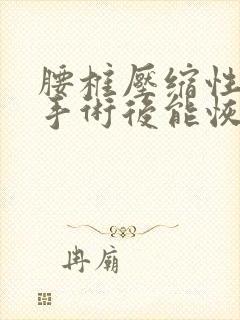 腰椎壓缩性
手術後能恢
冉廟